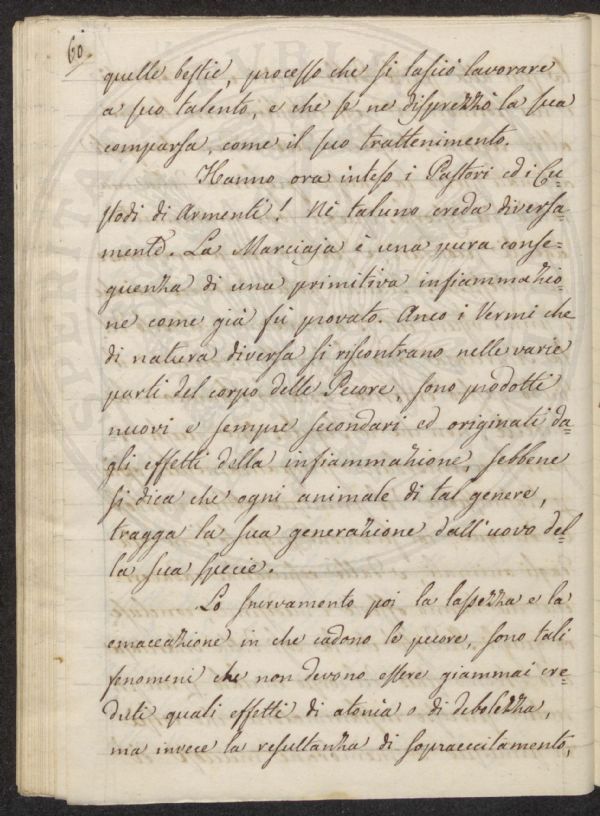 60.
quelle bestie, processo che si lasciò lavorare
a suo talento, e che se ne disprezzò la sua
comparsa, come il suo trattenimento.
Hanno ora inteso i Pastori ed i Cu=
stodi di Armenti! Nè taluno creda diversa=
mente. La Marciaja è una pura conse=
guenza di una primitiva infiammazio=
ne come già fù provato. Anco i Vermi che
di natura diversa si riscontrano nelle varie
parti del corpo delle Pecore, sono prodotti
nuovi e sempre secondari ed originati da=
gli effetti della infiammazione, sebbene
si dica che ogni animale di tal genere,
tragga la sua generazione dall'uovo del=
la sua specie.
Lo snervamento poi la lassezza e la
emaceazione in che cadono le pecore, sono tali
fenomeni che non devono essere giammai cre=
duti quali effetti di atonia o di debolezza,
ma invece la resultanza di sopraeccitamento,